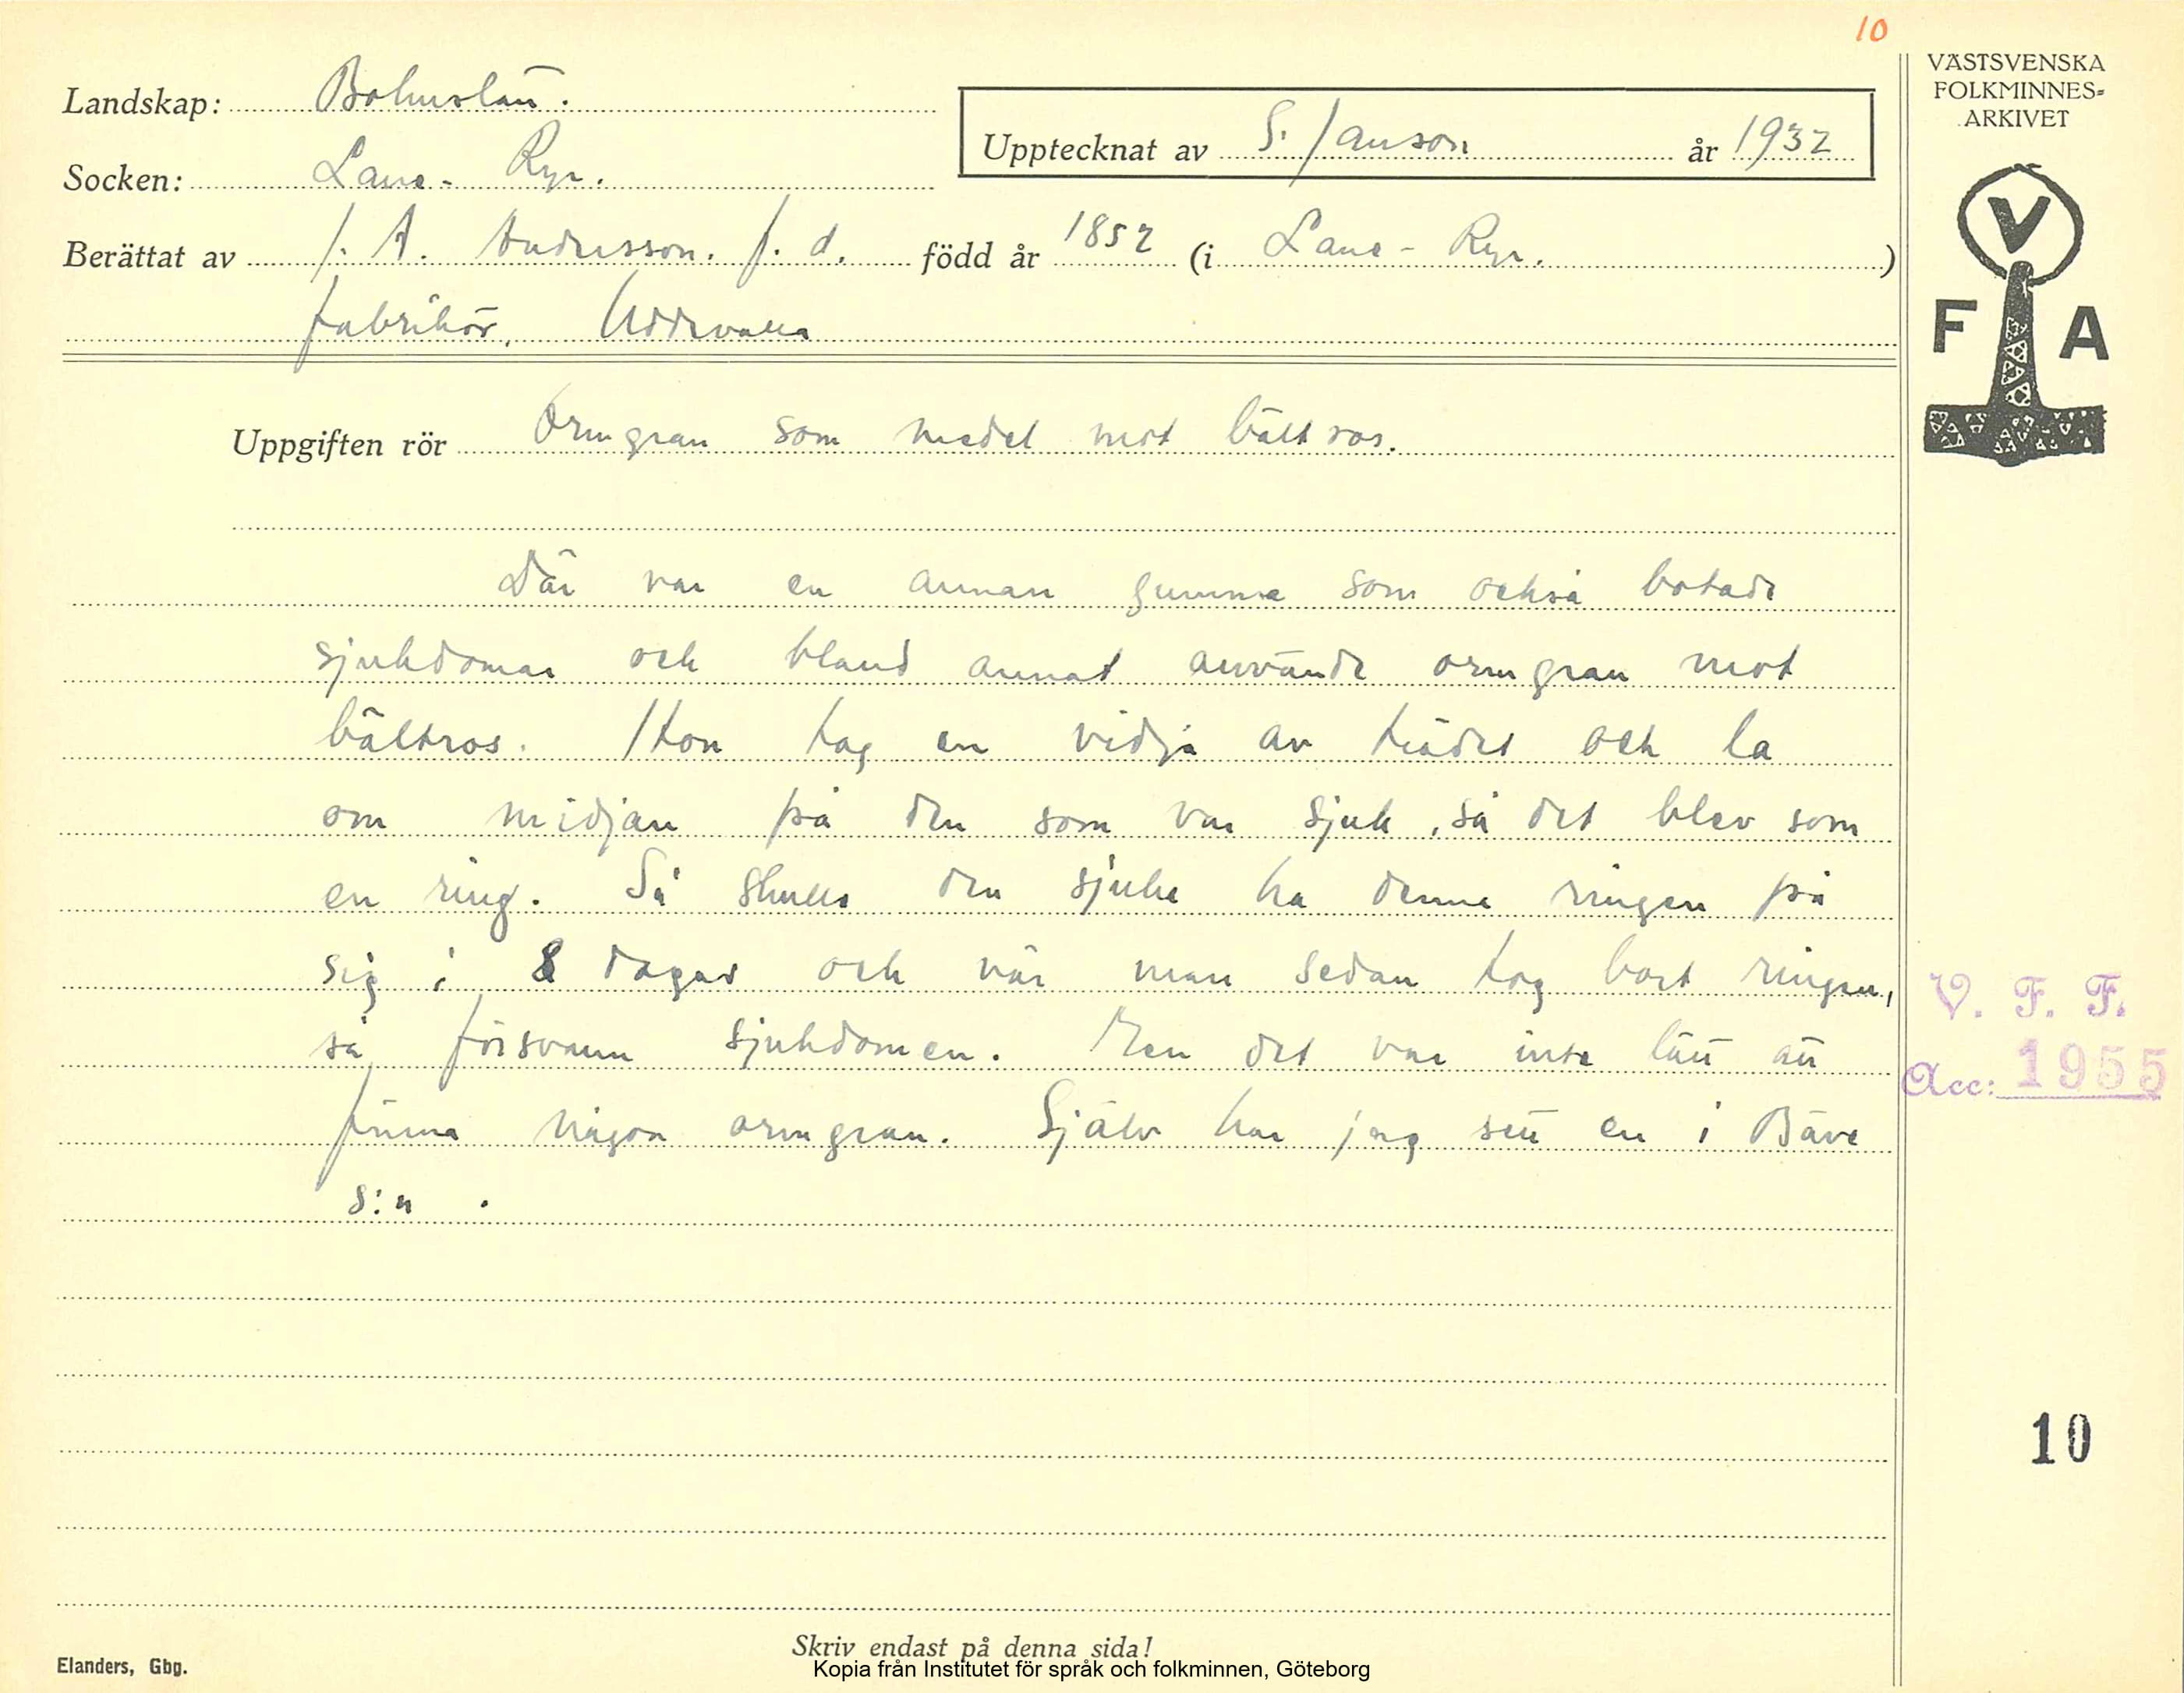 10
VÄSTSVENSKA
FOLKMINNES=
ARKIVET
Landskap: Bohuslän.
Upptecknat av S. Janson år 1932
Socken: Lane-Ryr.
Berättat av J. A. Andersson. f. d. född år 1852 (i Lane-Ryr.)
fabrikör, Uddevalla
V
F A
Uppgiften rör Ormgran som medel mot bältros.
Där var en annan gumma som också botade
sjukdomar och bland annat använde ormgran mot
bältros. Hon tog en vidja av trädet och la
om midjan på den som var sjuk, så det blev som
en ring. Så skulle den sjuke ha denna ringen på
sig i 8 dagar och när man sedan tog bort ringen,
så försvann sjukdomen. Men det var inte lätt att
finna någon ormgran. Själv har jag sett en i Bäve
s:n.
V. F. F.
Acc: 1955
10
Skriv endast på denna sida!
Elanders, Gbg.
Kopia från Institutet för språk och folkminnen, Göteborg